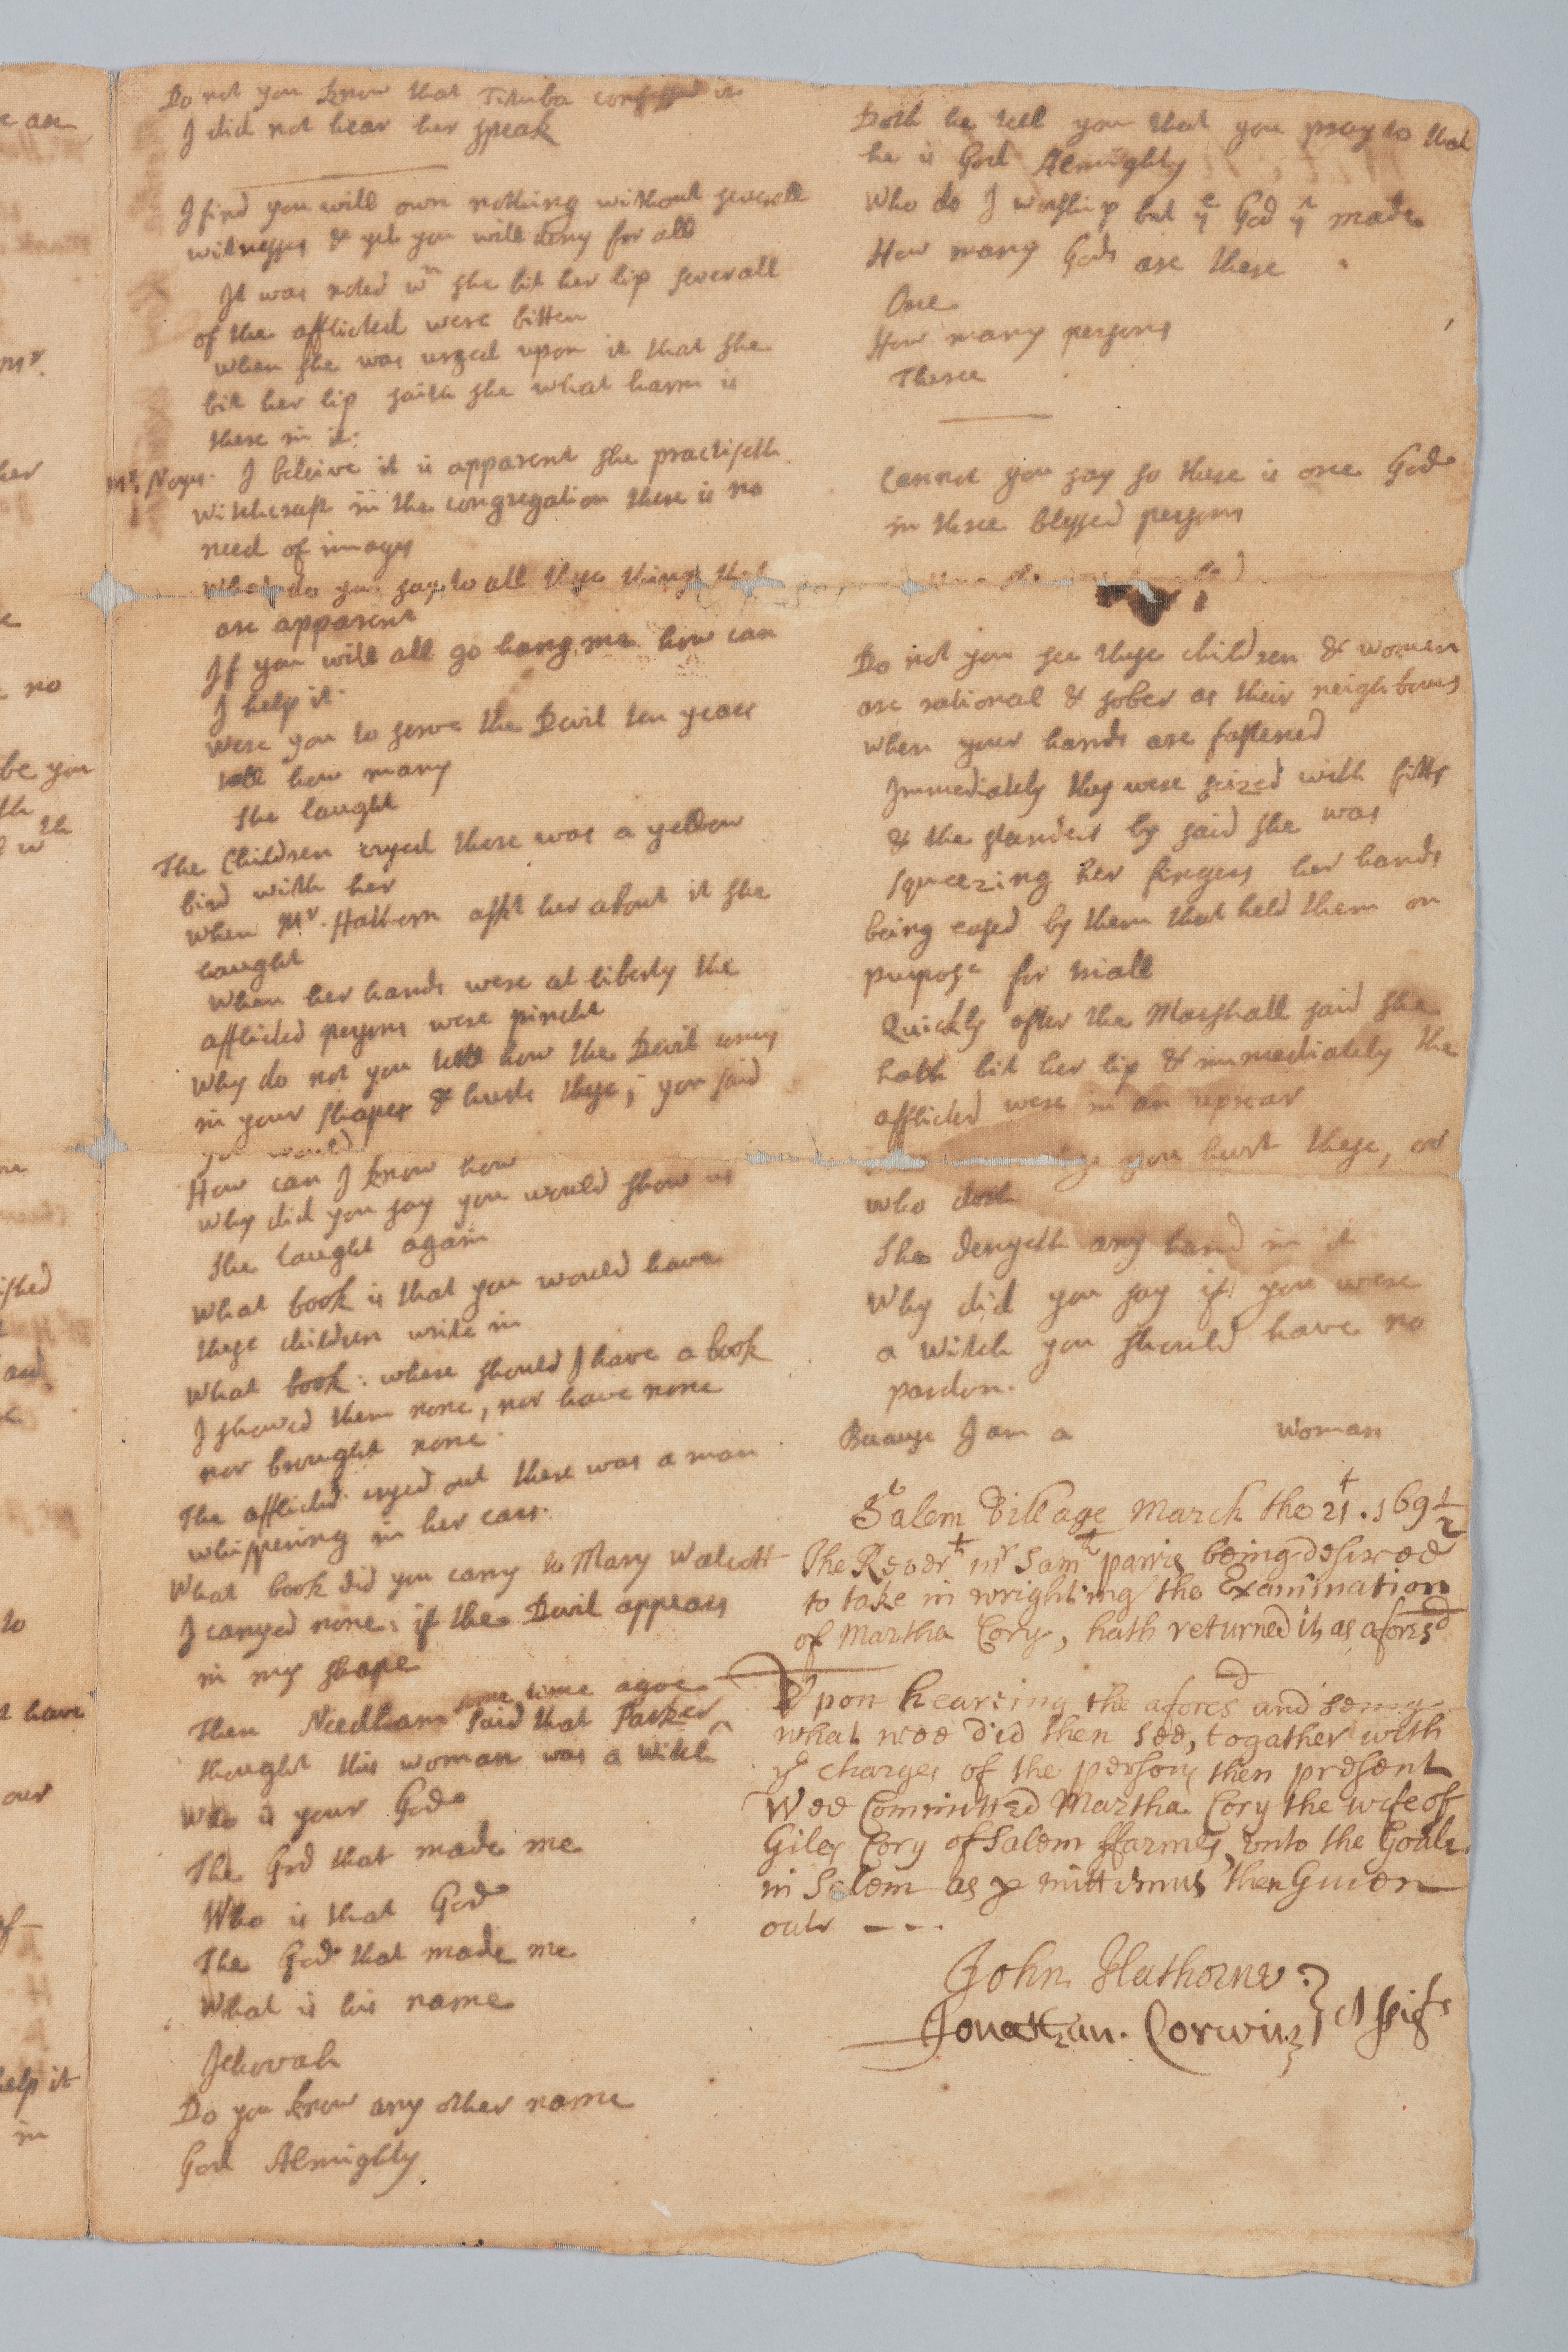 Do not you know that Tituba confessed it
I did not hear her speak
I find you will own nothing without severall
witnesses & yet you will deny for all
It was noted wn she bit her lip severall
of the afflicted were bitten
when she was urged upon it that she
bit her lip saith she what harm is
there in it.
Mr. Noyes. I beleive it is apparent she practiseth
Witchcraft in the congregation there is no
need of images
What do you say to all these things that
are apparent
If you will all go hang me how can
I help it.
Were you to serve the Devil ten years
tell how many
She laught
The Children cryed there was a yellow
bird with her
When Mr. Hathorn askt her about it she
laught
When her hands were at liberty the
afflicted persons were pincht
Why do not you tell how the Devil comes
in your shapes & hurts these, you said
you would
How can I know how
Why did you say you would show us
She laught again
What book is that you would have
these children write in
What book: where should I have a book
I showed them none, nor have none
nor brought none.
The afflicted cryed out there was a man
whispering in her ears.
What book did you carry to Mary Walcott
I carryed none: if the Devil appears
in my shape
Then Needham said that Parker some time agoe
thought this woman was a Witch
Who is your God
The God that made me
Who is that God
The God that made me
What is his name
Jehovah
Do you know any other name
God Almighty
Doth he tell you that you pray to that
he is God Almighty
Who do I worship but ye God yt made
How many Gods are there
One
How many persons
Three
Cannot you say so there is one God
in three blessed persons
Do not you see these children & women
are rational & sober as their neighbours
when your hands are fastened
Immediately they were seized with fitts
& the standers by said she was
squeezing her fingers her hands
being eased by them that held them on
purpose for triall
Quickly after the Marshall said she
hath bit her lip & immediately the
afflicted were in an uproar
you hurt these, or
who doth
She denyeth any hand in it
Why did you say if you were
a Witch you should have no
pardon.
Because I am a woman
Salem Village March the 21t. 169½
The Revert mr Samll parris being desired
to take in wrighting the Examination
of Martha Cory, hath returned it as aforesd
Upon hearing the aforesd and seing
what wee did then see, togather with
ye charges of the persons then present
Wee Committed Martha Cory the wife of
Giles Cory of Salem ffarmes, unto the Goale
in Salem as p mittimus then Given
out
John Hathorne
Jonathan. Corwin } Assists